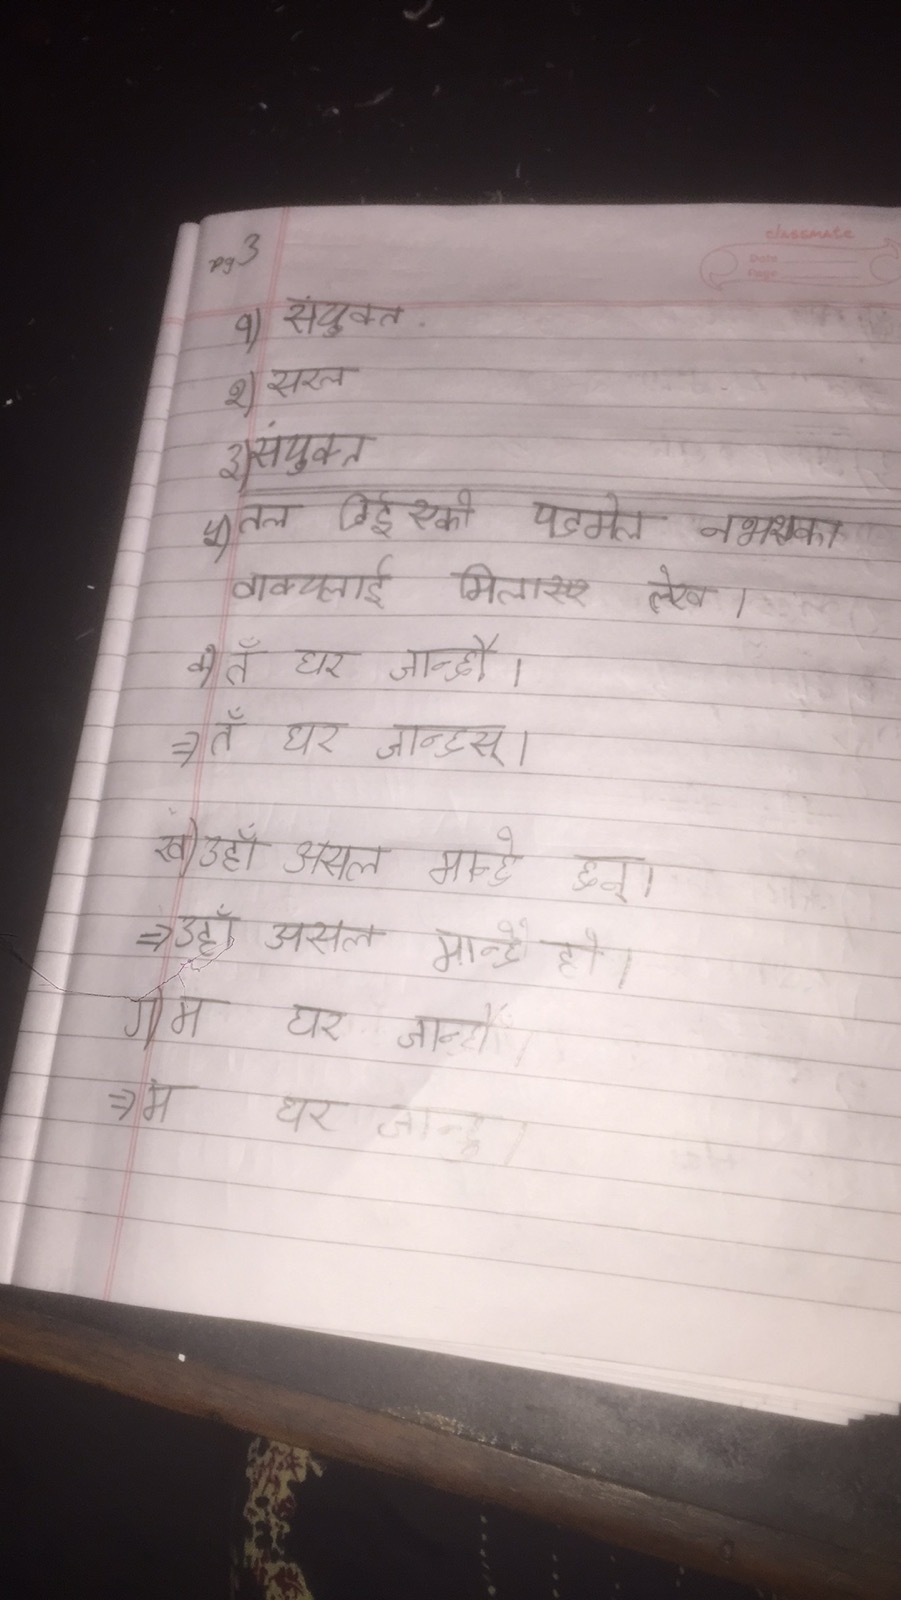 pg 3
classmate
Date
Page
१) संयुक्त.
२) सरल
३) संयुक्त
५) तल दिईएको पदमेल नभएका
वाक्यलाई मिलाएर लेख।
क) तँ घर जान्छौ।
⇒ तँ घर जान्छस्।
ख) उहाँ असल मान्छे छन्।
⇒ उहाँ असल मान्छे हो।
ग) म घर जान्छौं।
⇒ म घर जान्छु।